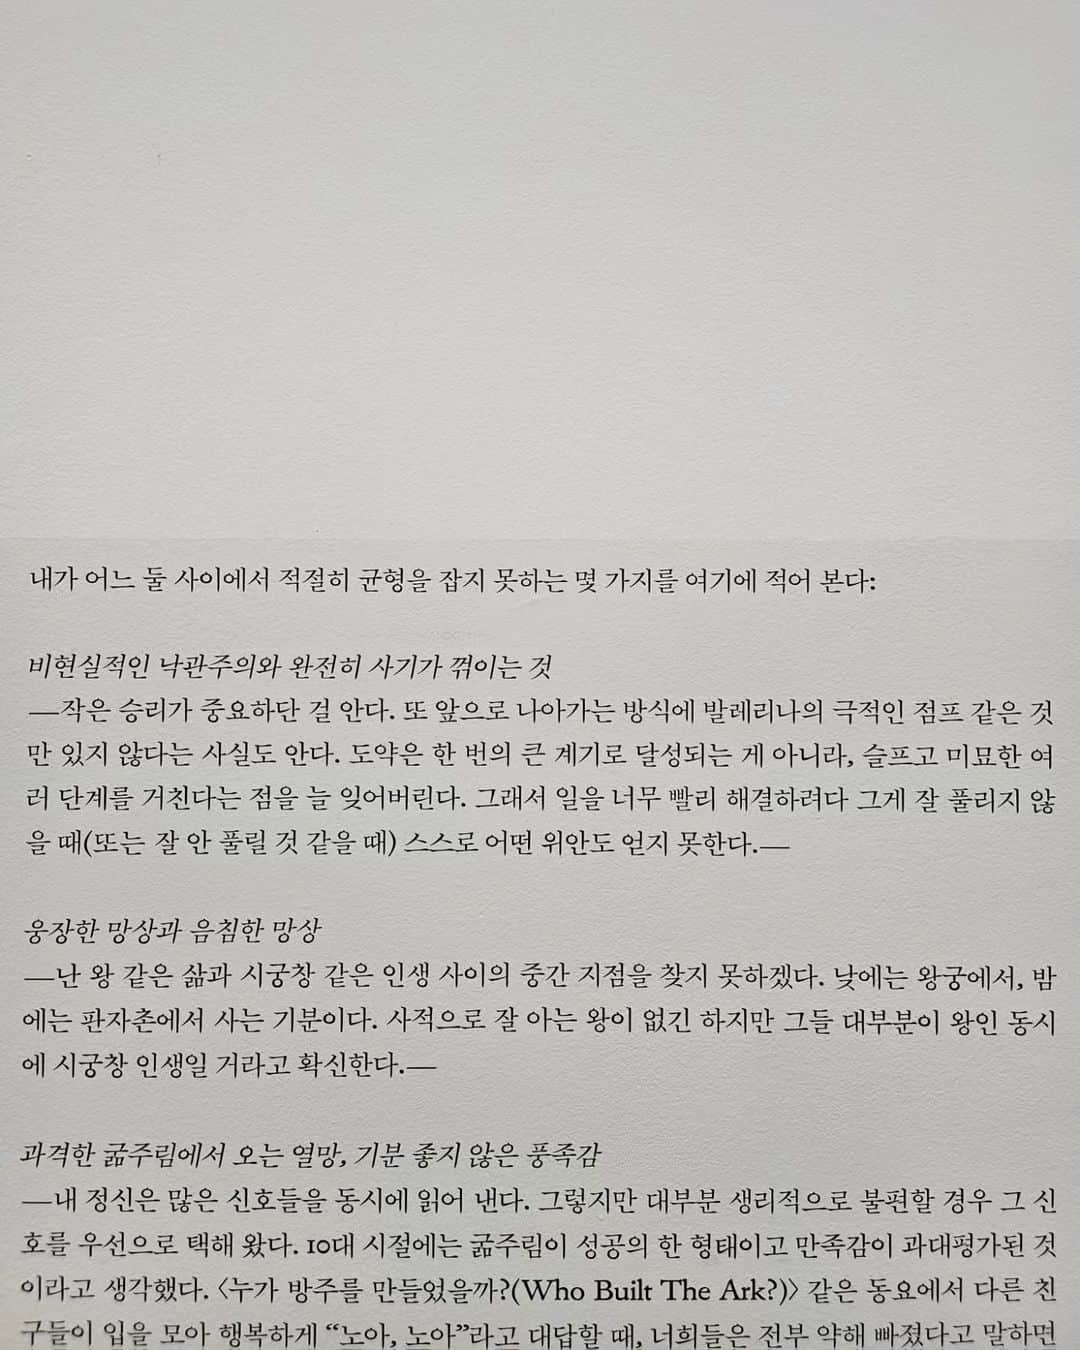 내가 어느 둘 사이에서 적절히 균형을 잡지 못하는 몇 가지를 여기에 적어 본다:
비현실적인 낙관주의와 완전히 사기가 꺾이는 것
—작은 승리가 중요하단 걸 안다. 또 앞으로 나아가는 방식에 발레리나의 극적인 점프 같은 것
만 있지 않다는 사실도 안다. 도약은 한 번의 큰 계기로 달성되는 게 아니라, 슬프고 미묘한 여
러 단계를 거친다는 점을 늘 잊어버린다. 그래서 일을 너무 빨리 해결하려다 그게 잘 풀리지 않
을 때(또는 잘 안 풀릴 것 같을 때) 스스로 어떤 위안도 얻지 못한다.—
웅장한 망상과 음침한 망상
—난 왕 같은 삶과 시궁창 같은 인생 사이의 중간 지점을 찾지 못하겠다. 낮에는 왕궁에서, 밤
에는 판자촌에서 사는 기분이다. 사적으로 잘 아는 왕이 없긴 하지만 그들 대부분이 왕인 동시
에 시궁창 인생일 거라고 확신한다.—
과격한 굶주림에서 오는 열망, 기분 좋지 않은 풍족감
—내 정신은 많은 신호들을 동시에 읽어 낸다. 그렇지만 대부분 생리적으로 불편할 경우 그 신
호를 우선으로 택해 왔다. 10대 시절에는 굶주림이 성공의 한 형태이고 만족감이 과대평가된 것
이라고 생각했다. 〈누가 방주를 만들었을까?(Who Built The Ark?)〉 같은 동요에서 다른 친
구들이 입을 모아 행복하게 “노아, 노아”라고 대답할 때, 너희들은 전부 약해 빠졌다고 말하면